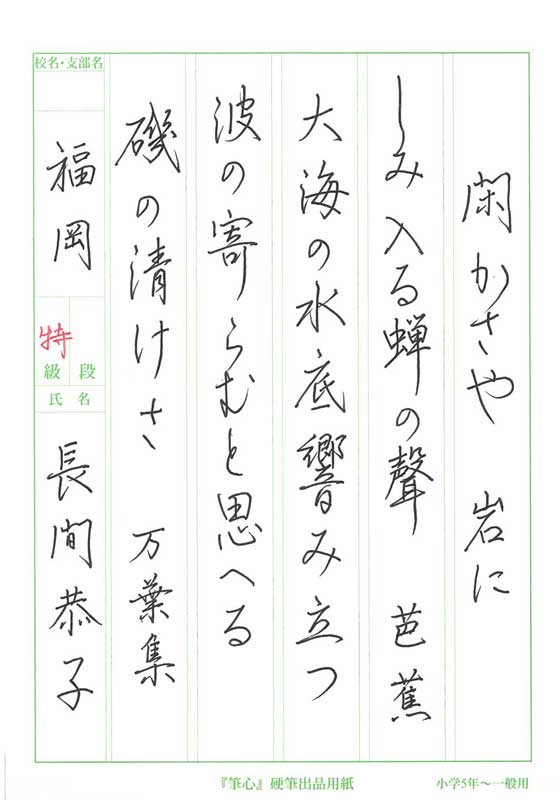 閑かさや 岩に
しみ入る蝉の聲 芭蕉
大海の水底響み立つ
波の寄らむと思へる
磯の清けさ 万葉集
校名・支部名
福岡
特
級 段
氏名
長間恭子
『筆心』硬筆出品用紙
小学5年〜一般用